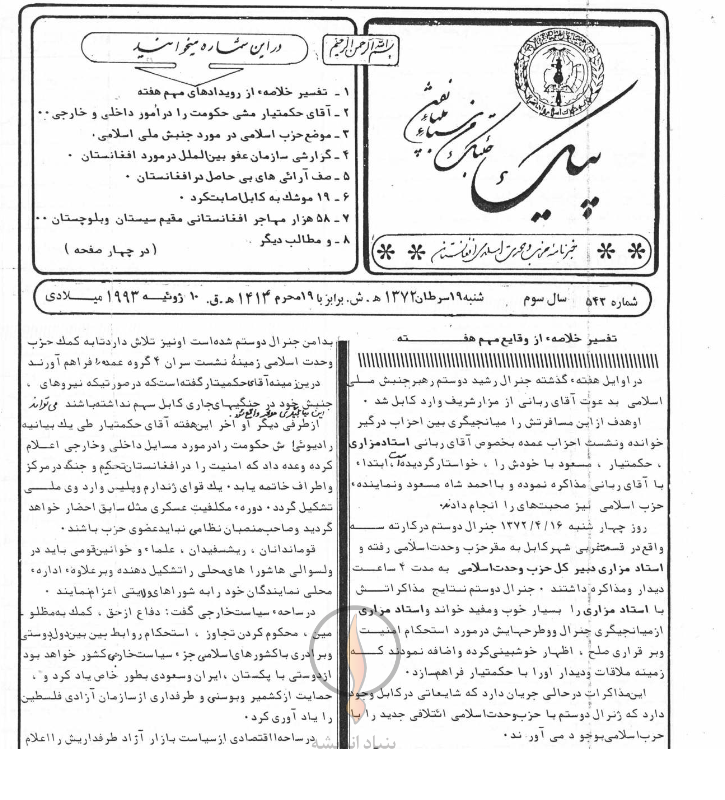 بسم الله الرحمن الرحیم
پیک
خبرنامه حزب وحدت اسلامی افغانستان
در این شماره میخوانید
۱ ـ تفسیر خلاصهء از رویدادهای مهم هفته
۲ ـ آقای حکمتیار مشی حکومت را در امور داخلی و خارجی ۰۰
۳ ـ موضع حزب اسلامی در مورد جنبش ملی اسلامی.
۴ ـ گزارشی سازمان عفو بین الملل در مورد افغانستان ۰
۵ ـ صف آرائی های بی حاصل در افغانستان ۰
۶ ـ ۱۹ موشک به کابل اصابت کرد ۰
۷ ـ ۵۸ هزار مهاجر افغانستانی مقیم سیستان و بلوچستان ۰۰
۸ ـ و مطالب دیگر .
( در چهار صفحه )
شماره ۵۴۲ سال سوم شنبه ۱۹ سرطان ۱۳۷۲ ه‍ .ش. برابر با ۱۹ محرم ۱۴۱۴ ه‍ .ق. ۱۰ ژوئیه ۱۹۹۳ میلادی
تفسیر خلاصهء از وقایع مهم هفته
در اوایل هفتهء گذشته جنرال رشید دوستم رهبر جنبش ملی
اسلامی به دعوت آقای ربانی از مزار شریف وارد کابل شد ۰
او هدف از این مسافرتش را میانجیگری بین احزاب درگیر
خوانده و نشست احزاب عمده بخصوص آقای ربانی استاد مزاری
، حکمتیار ، مسعود با خودش را ، خواستار گردیده است، ابتداء
با آقای ربانی مذاکره نموده و با احمد شاه مسعود و نمایندهء
حزب اسلامی نیز صحبتهای را انجام دادند.
روز چهار شنبه ۱۳۷۲/۴/۱۶ جنرال دوستم در کارته سه
واقع در قسمت غربی شهر کابل به مقر حزب وحدت اسلامی رفته و
استاد مزاری دبیر کل حزب وحدت اسلامی به مدت ۴ ساعت
دیدار و مذاکره داشتند ۰ جنرال دوستم نتایج مذاکراتش
با استاد مزاری را بسیار خوب و مفید خواند و استاد مزاری
از میانجیگری جنرال و و طرحهایش در مورد استحکام امنیت
و بر قراری صلح ، اظهار خوشبینی کرده و اضافه نمودند که
زمینه ملاقات و دیدار او را با حکمتیار فراهم سازد ۰
این مذاکرات در حالی جریان دارد که شایعاتی در کابل وجود
دارد که ژنرال دوستم با حزب وحدت اسلامی ائتلافی جدید را با
حزب اسلامی بوجو د می آور ند ۰
بدامن جنرال دوستم شده است او نیز تلاش دارد تا به کمک حزب
وحدت اسلامی زمینهٔ نشست سران ۴ گروه عمده را فراهم آورند
در این زمینه آقای حکمیتار گفته است که در صورتیکه نیروهای ،
جنبش خود در جنگهای جاری کابل سهم نداشته باشند می تواند
این میانجیگری موثر واقع شود.
از طرفی دیگر او اخر این هفته آقای حکمتیار طی یک بیانیه
رادیوئی اش حکومت را در مورد مسایل داخلی و خارجی اعلام
کرده وعده داد که امنیت را در افغانستان تحکیم و جنگ در مرکز
و اطراف خاتمه یابد ۰ یک قوای ژندارم و پلیس وارد وی ملی
تشکیل گردد ۰ دورهء مکلفیت عسکری مثل سابق احضار خواهد
گردید و صاحب منصبان نظامی نباید عضوی حزب باشند ۰
قوماندانان ، ریشسفیدان ، علماء و خوانین قومی باید در
ولسوالی ها شورا های محلی را تشکیل دهنده و بر علاوهء ادارهء
محلی نمایندگان خود را به شورا های ولایتی اعزام نمایند ۰
در ساحهء سیاست خارجی گفت: دفاع از حق ، کمک به مظلو ـ
مین ، محکوم کردن تجاوز ، استحکام روابط بین بین دول دوستی
و برادری با کشورهای اسلامی جزء سیاست خارجی کشور خواهد بود
از دوستی با پکستان ، ایران و سعودی بطور خاص یاد کرد و ،
حمایت از کشمیر و بوسنی و طرفداری از سازمان آزادی فلسطین
را یاد آوری کرد ۰
در ساحه اقتصادی از سیاست بازار آزاد طرفداریش را اعلام
بنیاد اندیشه